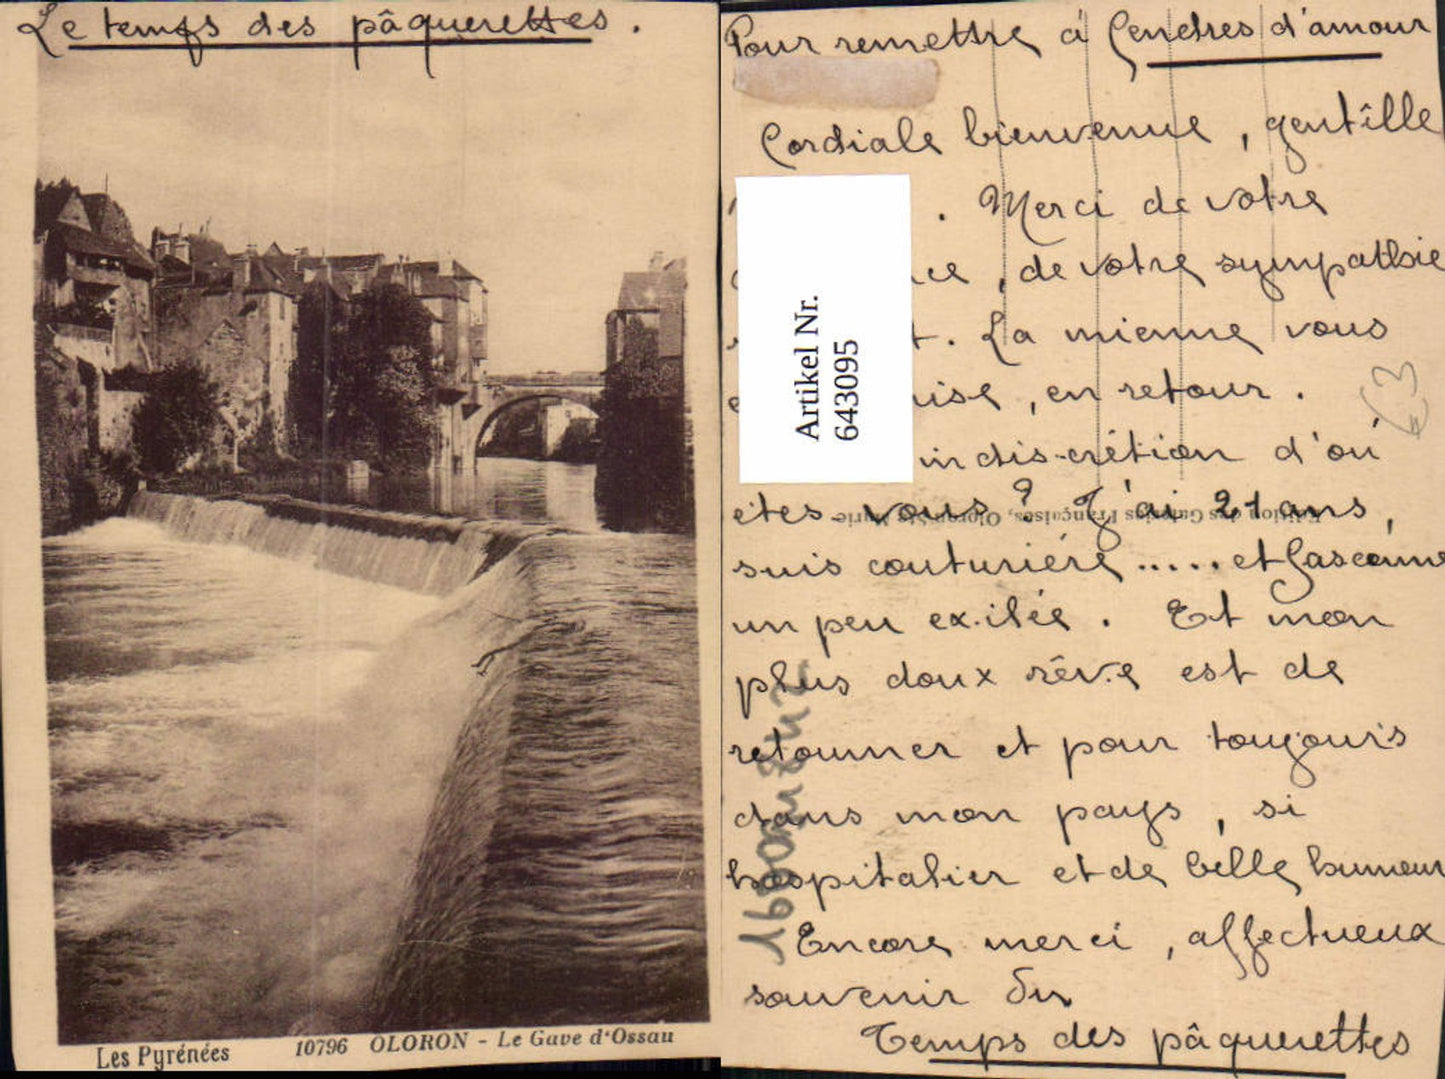 Le temps des pâquerettes.
Les Pyrénées
10796 OLORON - Le Gave d'Ossau
Pour remettre à Cendres d'amour
Cordiale bienvenue, gentille
. Merci de votre
ce, de votre sympathie
t. La mienne vous
ise, en retour.
indiscrétion d'où
êtes vous? J'ai 21 ans,
Edition des Galeries Françaises, Oloron-Ste-Marie
suis couturière ..... et Gasconne
un peu exilée. Et mon
plus doux rêve est de
retourner et pour toujours
dans mon pays, si
hospitalier et de belle humeur
Encore merci, affectueux
souvenir du
Temps des pâquerettes
Artikel Nr.
643095
€3